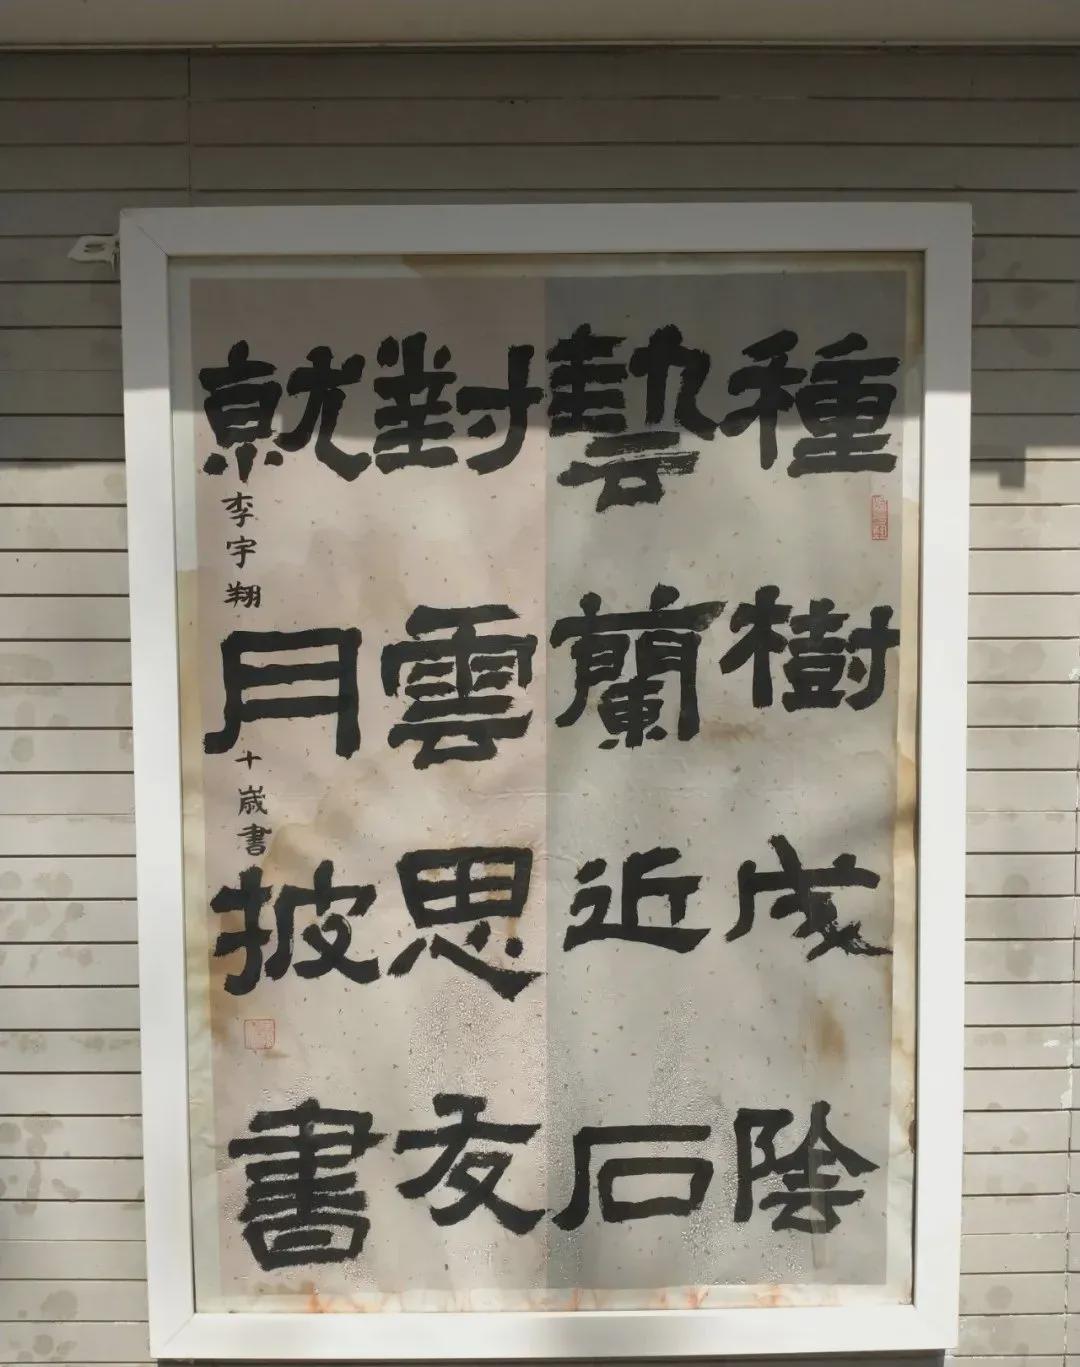 種樹成陰
藝蘭近石
對雲思友
就月披書
李宇翔
十歲書